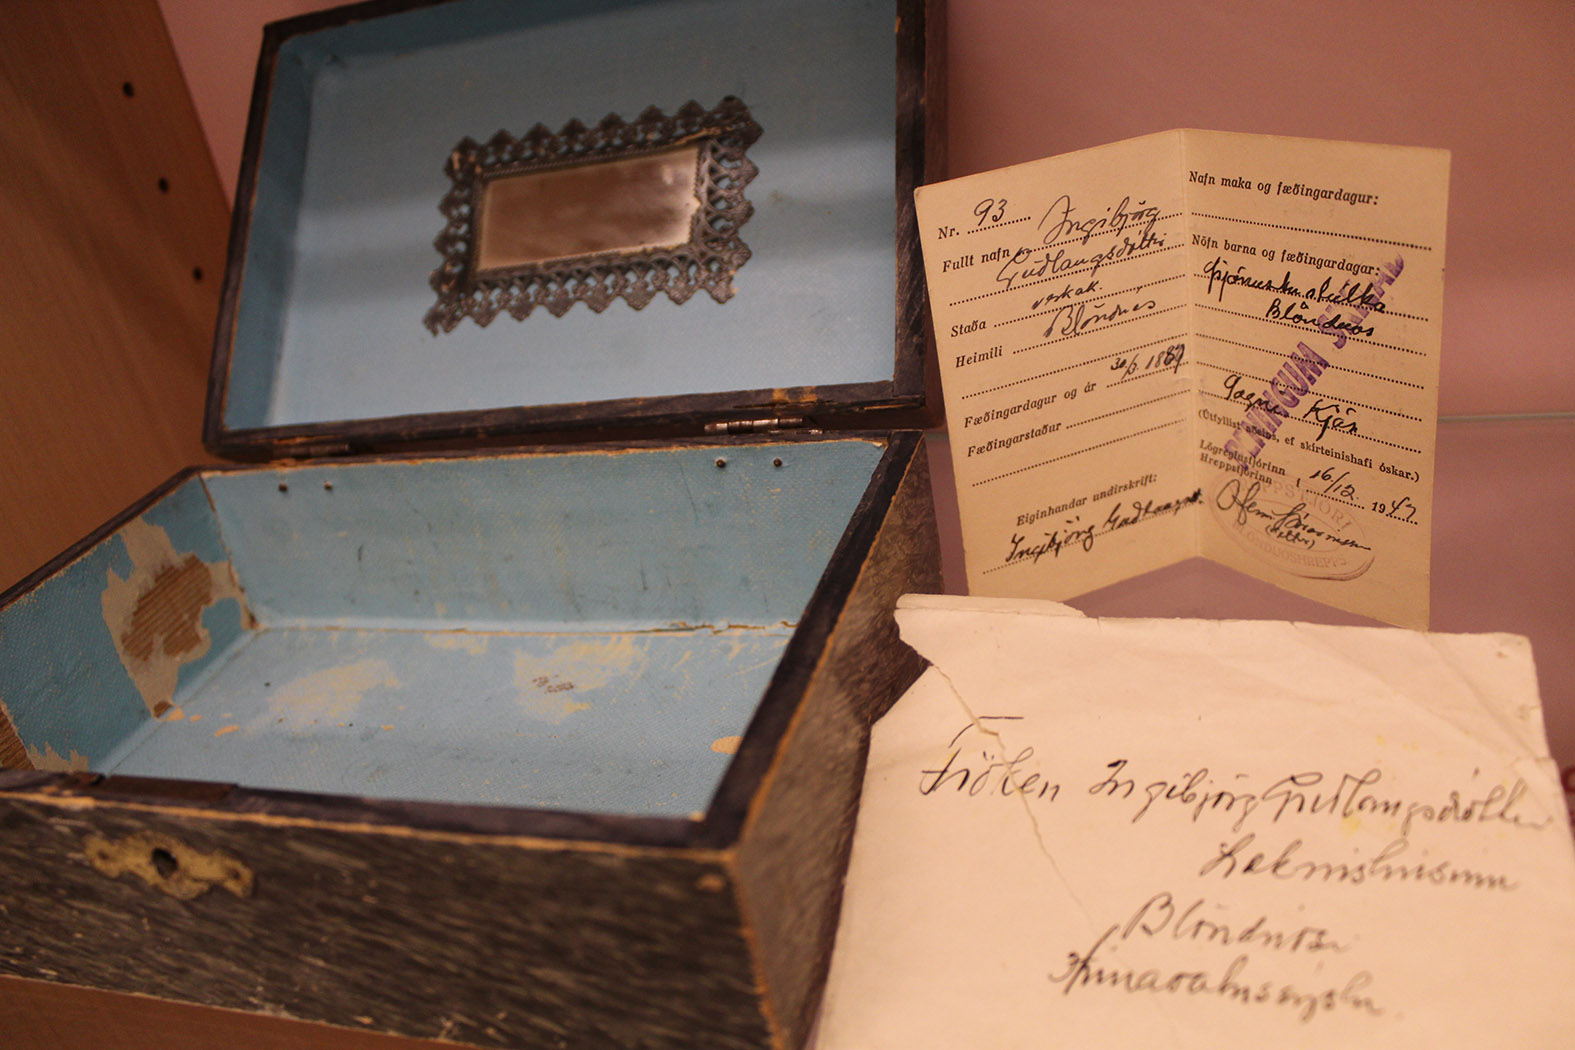 Nr. 93
Fullt nafn Ingibjörg
Guðlangsdóttir
verkak.
Staða
Heimili Blönduós
Fæðingardagur og ár 30/3 1887
Fæðingarstaður
Eiginhandar undirskrift:
Ingibjörg
Nafn maka og fæðingardagur:
Nöfn barna og fæðingardagar:
Þjónustu stúlka
Blönduós
PENINGUM SKIPT
(Útfyllist aðeins, ef skírteinishafi óskar.)
Lögreglustjórinn
Hreppstjórinn í 16/12 1947
HREPPSTJÓRI
BLÖNDUÓSHREPPS
Fröken Ingibjörg Guðlangsdóttir
Læknishúsinu
Blönduósi
Húnavatnssýslu